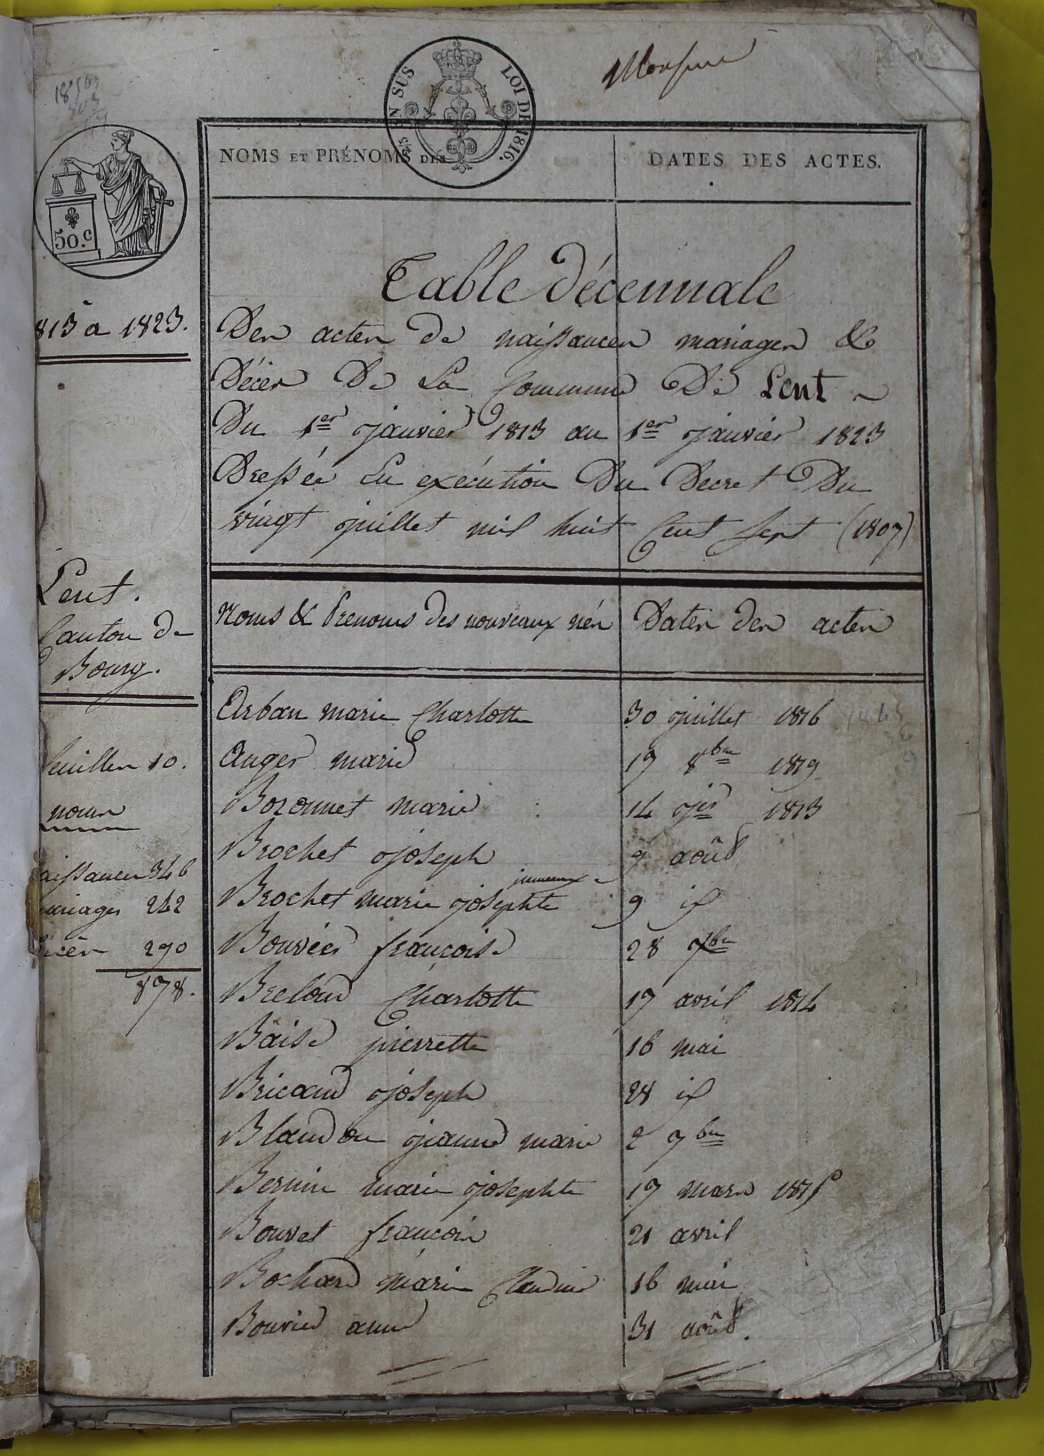 LOI DE 1816.
EN SUS
50.c
NOMS ET PRÉNOMS DES
DATES DES ACTES.
813 à 1823.
Table décennale
Des actes de naissances mariages &
Décès De La Commune De Lent
Du 1er janvier 1813 au 1er janvier 1823
Dressée En exécution Du Decret Du
vingt juillet mil huit Cent sept (1807)
Lent.
Canton de
Bourg.
Noms & Prenoms des nouveaux nés Dates des actes
feuilles 10.
noms
aissances 346
ariages 242
écès 290
878.
Arban marie Charlotte 30 juillet 1816
Auger marie 17 8bre 1819
Bozonnet marie 14 jer 1813
Brochet joseph 9 août
jumeaux
Brochet marie josephte 9 id
Bouvier françois 28 9bre
Breloud Charlotte 17 avril 1814
Baise pierrette 16 mai
Bricaud joseph 28 id
Blandon jeanne marie 2 9bre
Bernin marie josephte 17 mars 1815
Bouvet françois 21 avril
Bochard marie Claudine 16 mai
Bouvier anne 31 août.